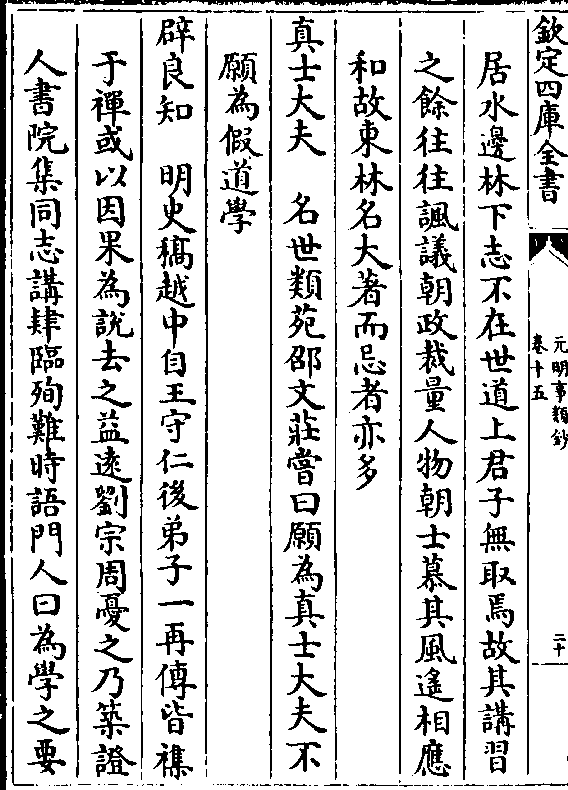 欽定四庫全書
元明事類鈔
卷十五
二十
居水邊林下志不在世道上君子無取焉故其講習
之餘往往諷議朝政裁量人物朝士慕其風遙相應
和故東林名大著而忌者亦多
真士大夫　名世類苑邵文莊嘗曰願為真士大夫不
願為假道學
辟良知　明史稿越中自王守仁後弟子一再傳皆襍
于禪或以因果為說去之益遠劉宗周憂之乃築證
人書院集同志講肄臨殉難時語門人曰為學之要